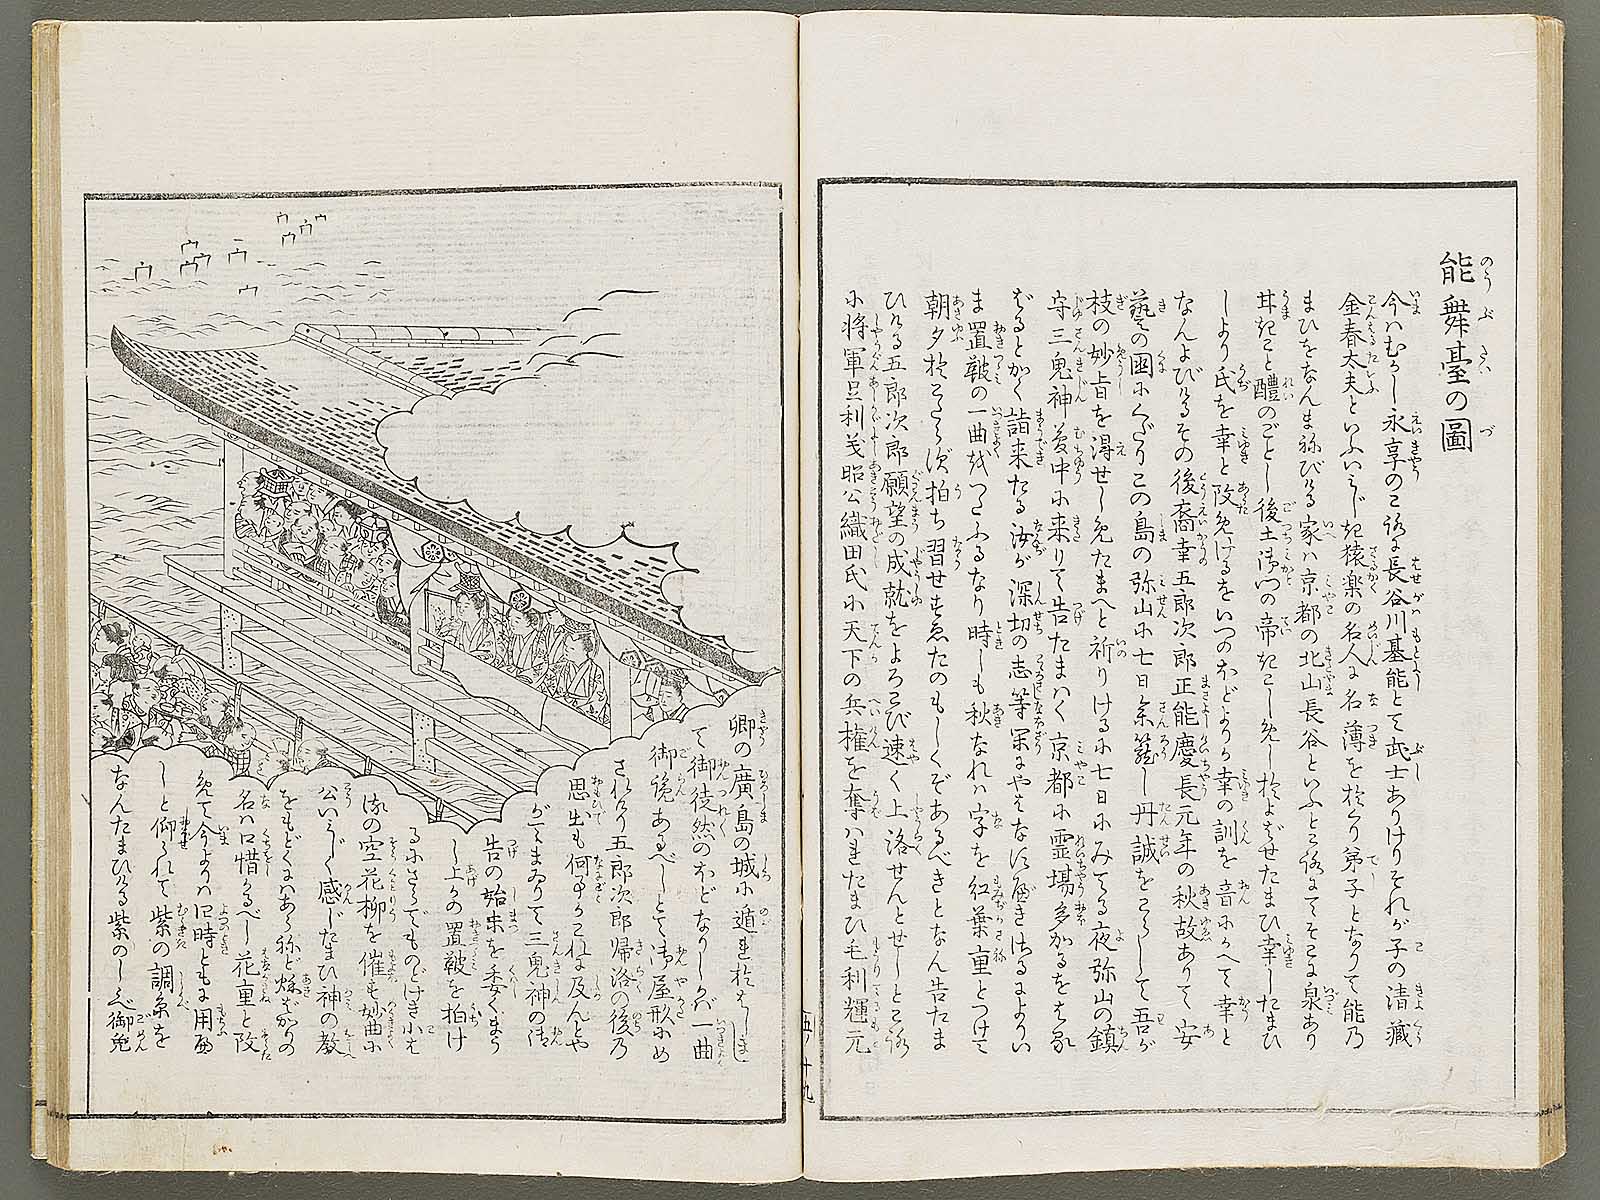 能舞臺の圖
今ハむかし永享のころに長谷川基能とて武士ありけりそれが子の清藏
金春太夫といふいみじき猿楽の名人に名薄を於くり弟子となりて能乃
まひをなんまねびける家ハ京都の北山長谷といふところにてそこに泉あり
甘きこと醴のごとし後土御門の帝きこしめし於よばせたまひ幸したまひ
しより氏を幸と改めけるをいつのほどよりか幸の訓を音にかへて幸と
なんよびけるその後裔幸五郎次郎正能慶長元年の秋故ありて安
藝の国にくだりこの島の弥山に七日参籠し丹誠をこらして吾が
枝の妙旨を得せしめたまへと祈りけるに七日にみてる夜弥山の鎮
守三鬼神夢中に来りて告たまハく京都に霊場多かるをはる
ばるとかく詣来たる汝が深切の志等閑にやはなすべきさるによりい
ま置鞁の一曲をつたふるなり時しも秋なれハ字を紅葉重とつけて
朝夕於こたらず拍ち習せすゑたのもしくぞあるべきとなん告たま
ひける五郎次郎願望の成就をよろこび速く上洛せんとせしところ
に将軍足利義昭公織田氏に天下の兵権を奪ハれたまひ毛利輝元
卿の廣島の城に遁れ於はしまし
て御徒然のほどなりしかバ一曲
御覧あるべしとて御屋形にめ
されけり五郎次郎帰洛の後乃
思出も何事かこれに及んとや
がてまゐりて三鬼神の御
告の始末を委くまう
し上かの置鞁を拍け
るにさらでものどけき小は
流の空花柳を催す妙曲に
公いみじく感じたまひ神の教
をもどくにハあらねど秋ばかりの
名ハ口惜かるべし花重と改
めて今よりハ四時ともに用る
しと仰られて紫の調糸を
なんたまひける紫のしらべ御免
五ノ十九